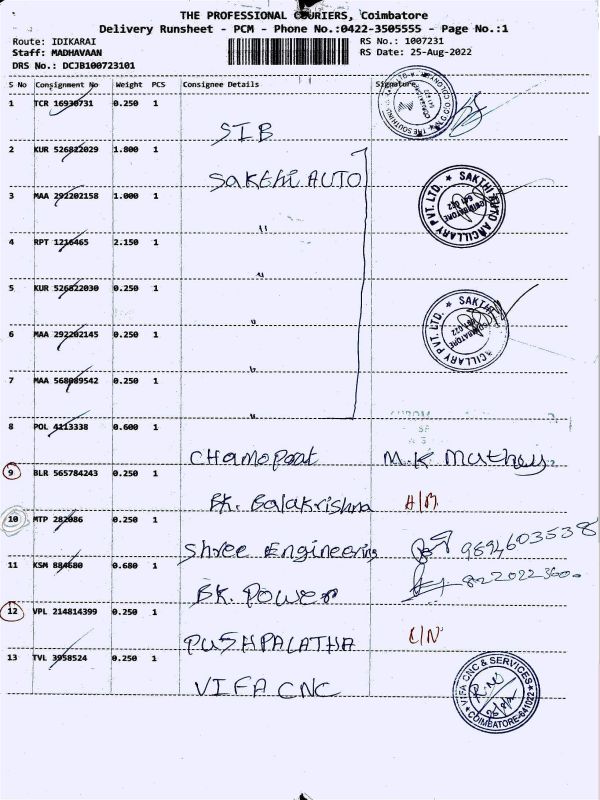 THE PROFESSIONAL COURIERS, Coimbatore
Delivery Runsheet - PCM - Phone No.:0422-3505555 - Page No.:1
Route: IDIKARAI RS No.: 1007231
Staff: MADHAVAAN RS Date: 25-Aug-2022
DRS No.: DCJB100723101
S No Consignment No Weight PCS Consignee Details Signature
1 TCR 16930731 0.250 1
SIB
2 KUR 526822029 1.800 1
Sakthi AUTO
SAKTHI AUTO ANCILLARY PVT. LTD. COIMBATORE 641 022
3 MAA 292202158 1.000 1
"
4 RPT 1216465 2.150 1
"
5 KUR 526822030 0.250 1
"
SAKTHI CILLARY PVT. LTD. COIMBATORE 641 022
6 MAA 292202145 1
"
7 MAA 568089542 0.250 1
"
8 POL 4113338 0.600 1
Champoat M.K. Mathey
9 BLR 565784243 0.250 1
BK. Balakrishna A/M
10 MTP 282086 0.250 1
Shree Engineering 9894603538
11 KSM 884680 0.680 1
BK. Power
12 VPL 214814399 0.250 1
PUSHPALATHA C/N
13 TVL 3958524 0.250 1
VIFA CNC
VIFA CNC & SERVICES COIMBATORE-641022